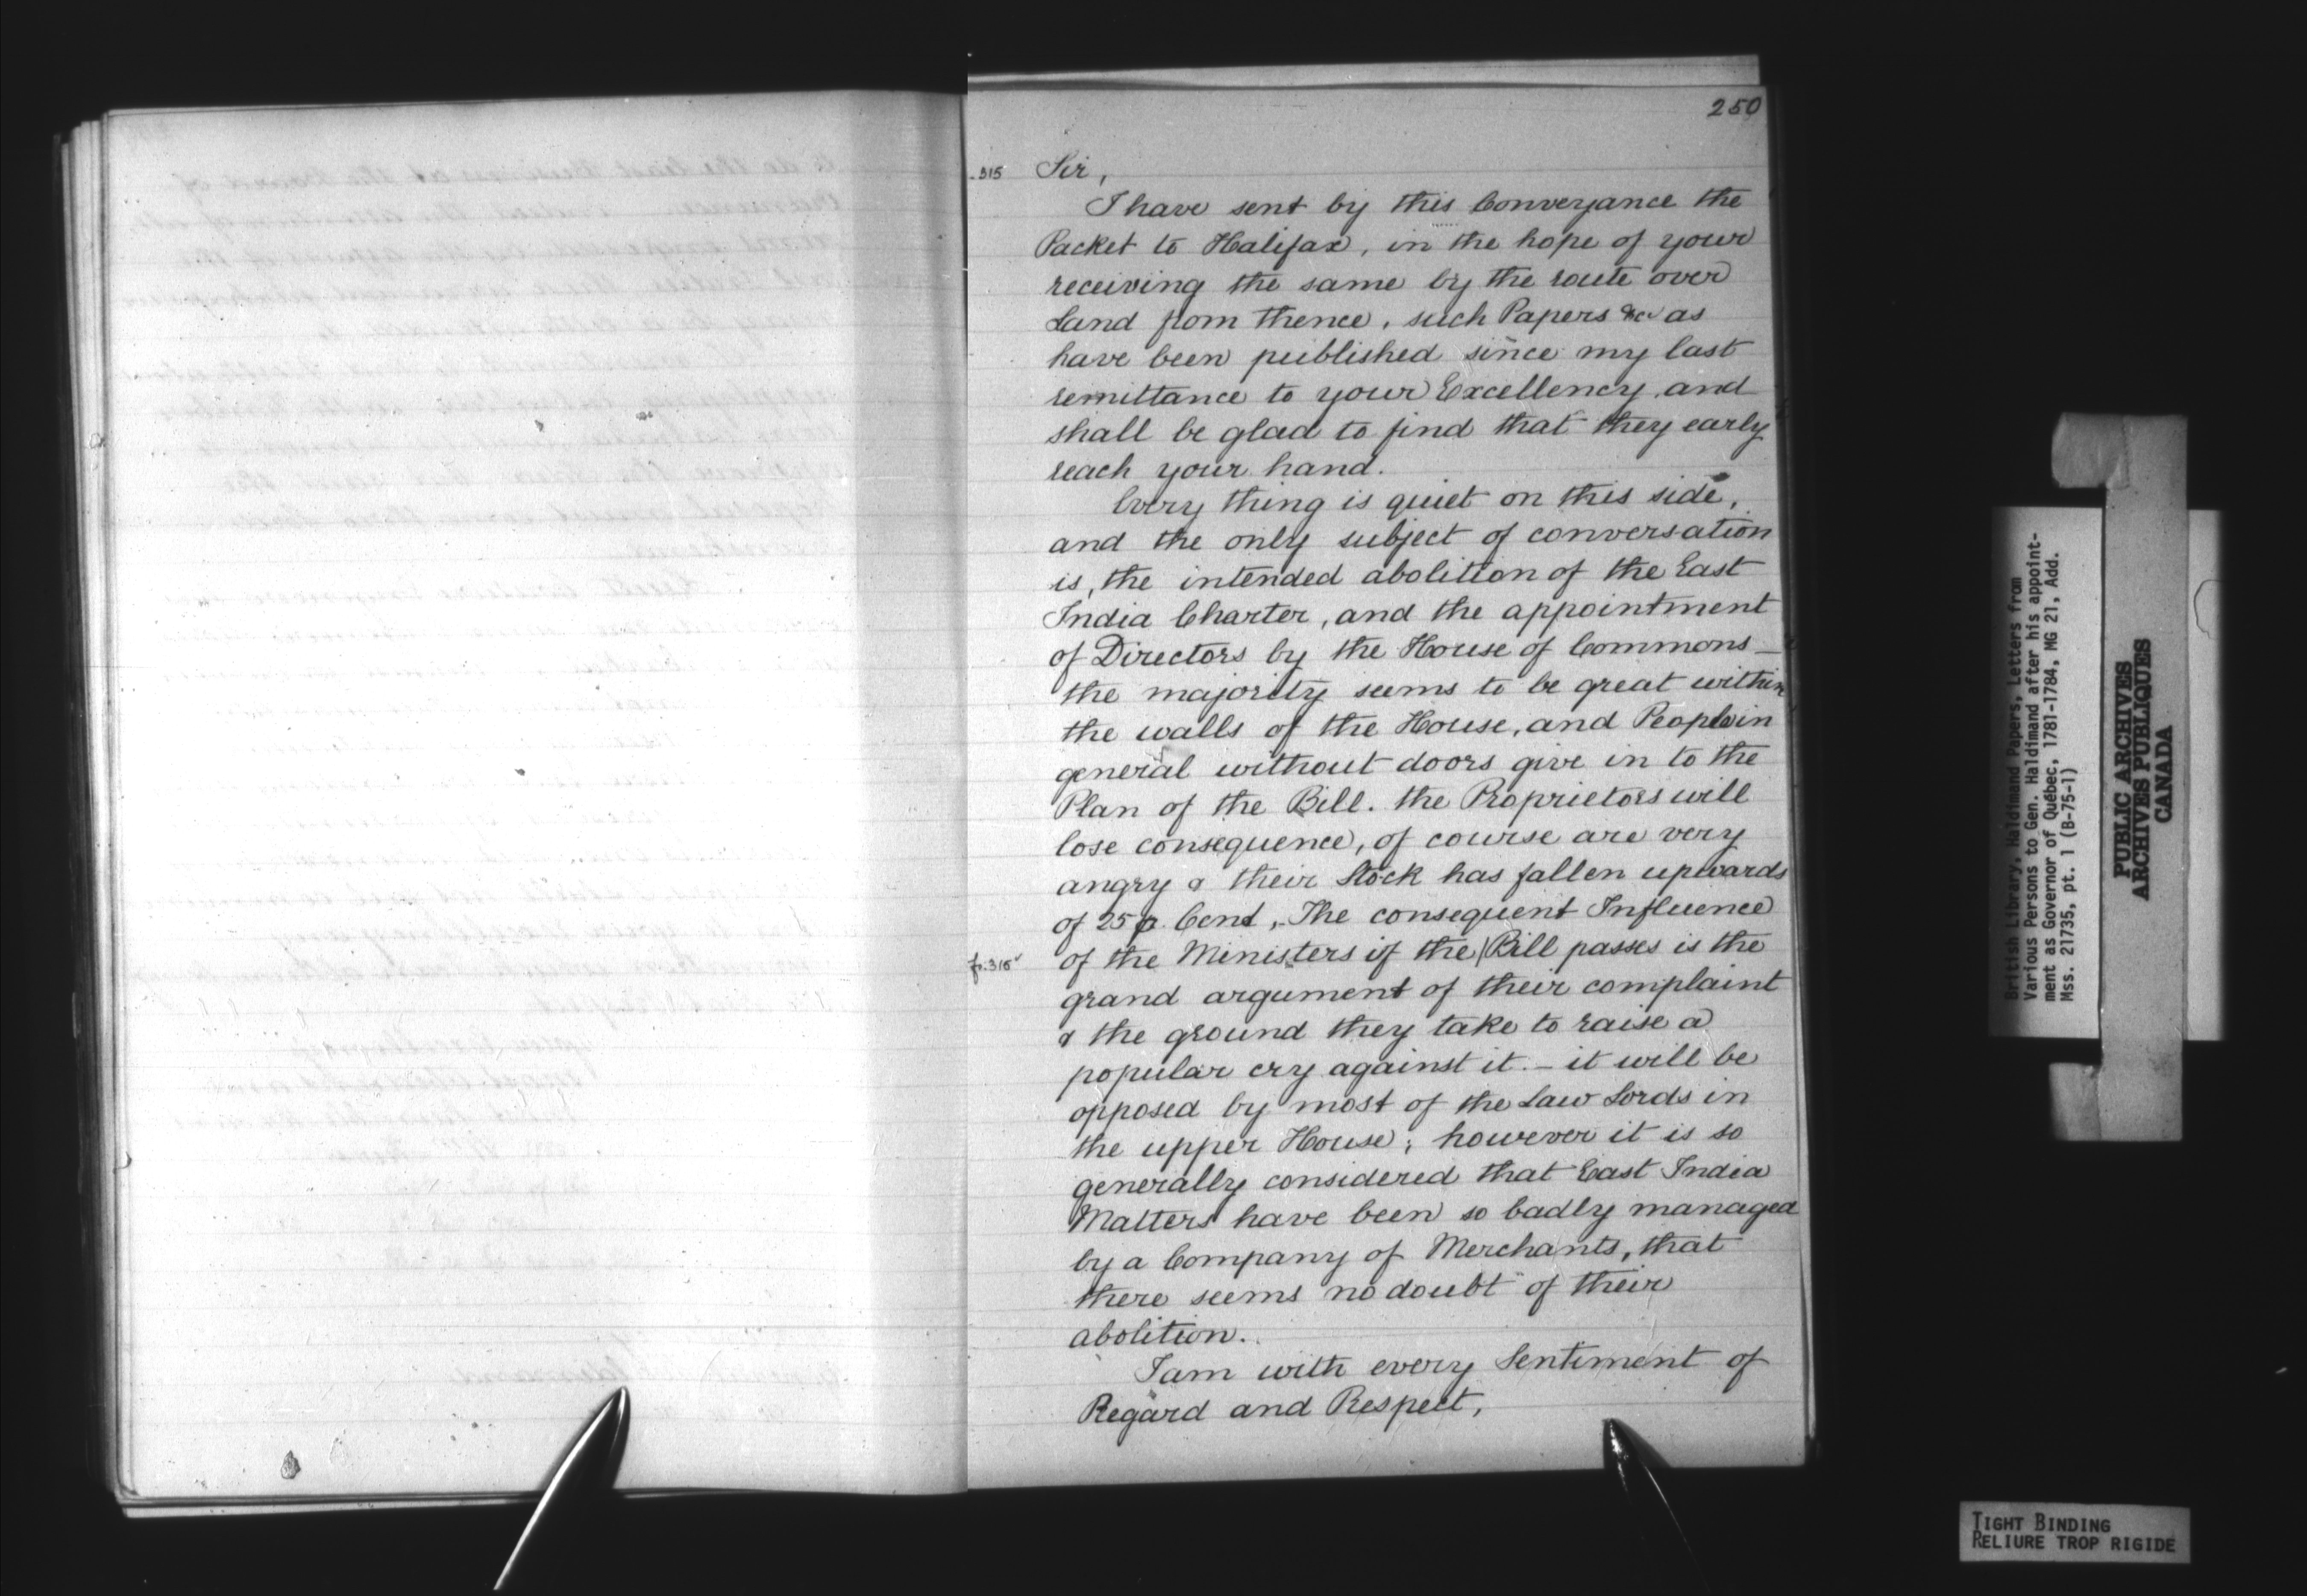 250
.315
Sir,
I have sent by this Conveyance the
Packet to Halifax, in the hope of your
receiving the same by the route over
Land from thence, such Papers &c as
have been published since my last
remittance to your Excellency, and
shall be glad to find that they early
reach your hand.
Every thing is quiet on this side,
and the only subject of conversation
is, the intended abolition of the East
India Charter, and the appointment
of Directors by the House of Commons —
the majority seems to be great within
the walls of the House, and People in
general without doors give in to the
Plan of the Bill. the Proprietors will
lose consequence, of course are very
angry & their Stock has fallen upwards
of 25 p. Cent, The consequent Influence
fo.315
of the Ministers if the Bill passes is the
grand argument of their complaint
& the ground they take to raise a
popular cry against it. — it will be
opposed by most of the Law Lords in
the upper House; however it is so
generally considered that East India
Matters have been so badly managed
by a Company of Merchants, that
there seems no doubt of their
abolition.
I am with every Sentiment of
Regard and Respect,
British Library, Haldimand Papers, Letters from
Various Persons to Gen. Haldimand after his appoint-
ment as Governor of Québec, 1781-1784, MG 21, Add.
Mss. 21735, pt. 1 (B-75-1)
PUBLIC ARCHIVES
ARCHIVES PUBLIQUES
CANADA
TIGHT BINDING
RELIURE TROP RIGIDE